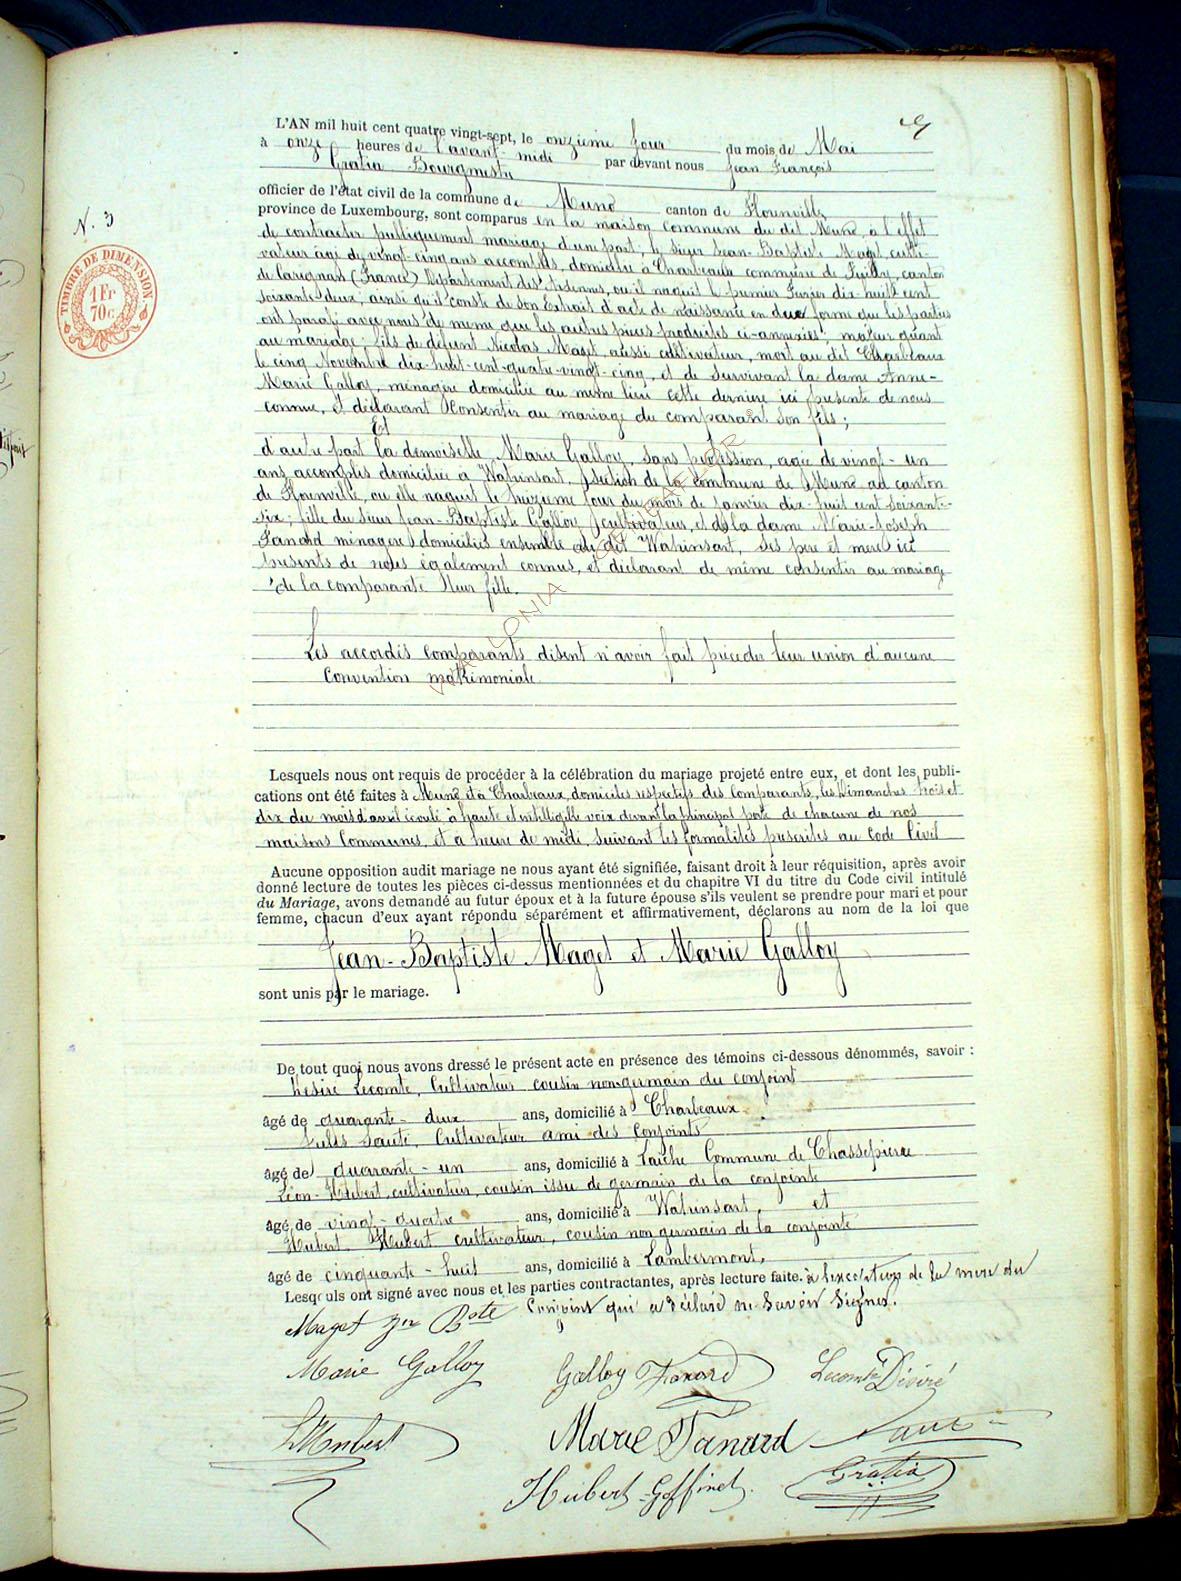 L'AN mil huit cent quatre vingt-sept, le onzième jour du mois de Mai
à onze heures de l'avant-midi par devant nous Jean François
Gratia Bourgmestre
officier de l'état civil de la commune de Muno canton de Florenville
province de Luxembourg, sont comparus en la maison commune du dit Muno, à l'effet
de contracter publiquement mariage d'une part, le sieur Jean-Baptiste Maget, culti-
vateur âgé de vingt-cinq ans accomplis, domicilié à Charbeaux commune de Puilly, canton
de Carignan (France) Département des Ardennes, où il naquit le premier Février dix-huit cent
soixante deux, ainsi qu'il conste de son Extrait d'acte de naissance en due forme que les parties
ont parafé avec nous de même que les autres pièces produites ci-annexées; majeur quant
au mariage; fils de défunt Nicolas Maget, aussi cultivateur, mort au dit Charbeaux
le cinq Novembre dix-huit-cent-quatre-vingt-cinq, et de survivant la dame Anne-
Marie Galloy, ménagère domiciliée au même lieu cette dernière ici présente de nous
connue, et déclarant consentir au mariage du comparant son fils;
Et
d'autre part la demoiselle Marie Galloy, sans profession, agée de vingt-un
ans accomplis domiciliée à Watrinsart, section de la commune de Muno ad canton
de Florenville, ou elle naquit le treizième jour du mois de Janvier dix-huit cent soixante-
six; fille du sieur Jean-Baptiste Galloy cultivateur, et de la dame Marie-Joseph
Fanard ménagère domiciliés ensemble au dit Watrinsart, ses père et mère ici
présents de nous également connus, et déclarant de même consentir au mariage
de la comparante leur fille.
Les accordés comparants disent n'avoir fait précéder leur union d'aucune
convention matrimoniale
Lesquels nous ont requis de procéder à la célébration du mariage projeté entre eux, et dont les publi-
cations ont été faites à Muno et à Charbeaux, domiciles respectifs des comparants, les Dimanches trois et
dix du mois d'avril écoulé à haute et intelligible voix devant la principal porte de chacune de nos
maisons Communes, et à heure de midi, suivant les formalités prescrites au Code Civil
Aucune opposition audit mariage ne nous ayant été signifiée, faisant droit à leur réquisition, après avoir
donné lecture de toutes les pièces ci-dessus mentionnées et du chapitre VI du titre du Code civil intitulé
du Mariage, avons demandé au futur époux et à la future épouse s'ils veulent se prendre pour mari et pour
femme, chacun d'eux ayant répondu séparément et affirmativement, déclarons au nom de la loi que
Jean-Baptiste Maget et Marie Galloy
sont unis par le mariage.
De tout quoi nous avons dressé le présent acte en présence des témoins ci-dessous dénommés, savoir :
Désiré Lecomte, Cultivateur cousin non germain du conjoint
âgé de quarante-deux ans, domicilié à Charbeaux
Jules Lauté, Cultivateur ami des conjoints
âgé de quarante-un ans, domicilié à Laiche Commune de Chassepierre
Léon-Hubert, cultivateur, cousin issu de germain de la conjointe
âgé de vingt-quatre ans, domicilié à Watrinsart, et
Hubert Hubert cultivateur, cousin non germain de la conjointe
âgé de cinquante-huit ans, domicilié à Lambermont,
Lesquels ont signé avec nous et les parties contractantes, après lecture faite. à l'exception de la mère du
conjoint qui a déclaré ne savoir signer.
Maget Jn Bste
Marie Galloy Galloy Fanard Lecomte Désiré
L Hubert Marie Fanard Lauté
Hubert-Goffinet. Gratia
N. 3
TIMBRE DE DIMENSION
1 Fr
70 c.